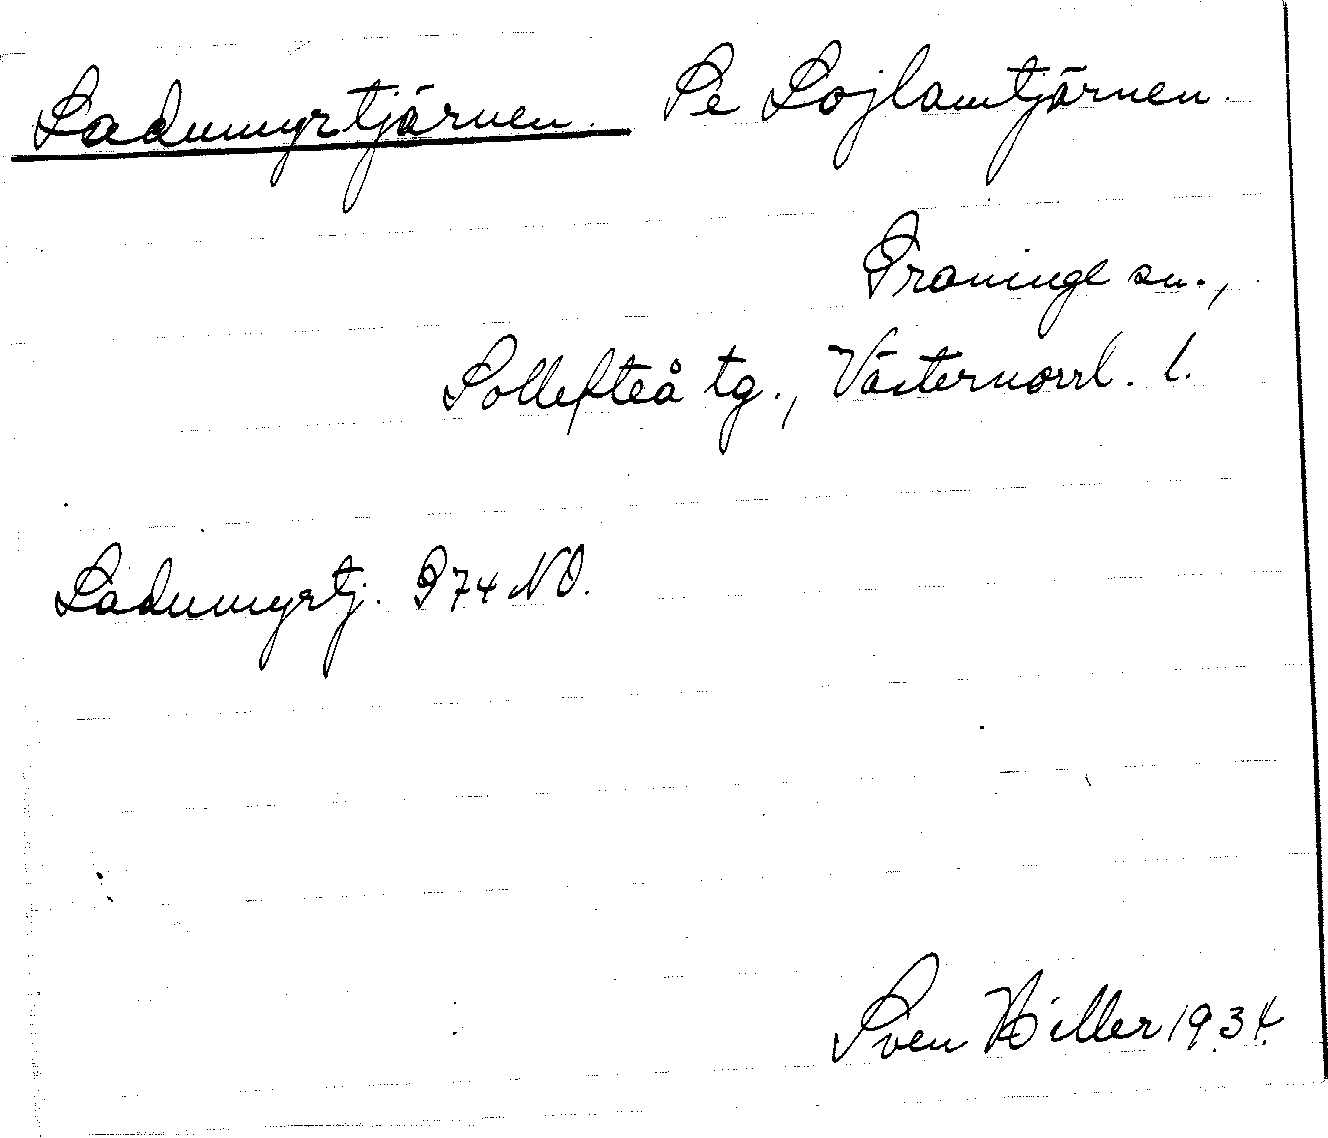 Ladumyrtjärnen. Se Lojlamtjärnen.
Graninge sn.,
Sollefteå tg., Västernorrl. l.
Ladumyrtj. G74 NO.
Sven Hiller 1934.